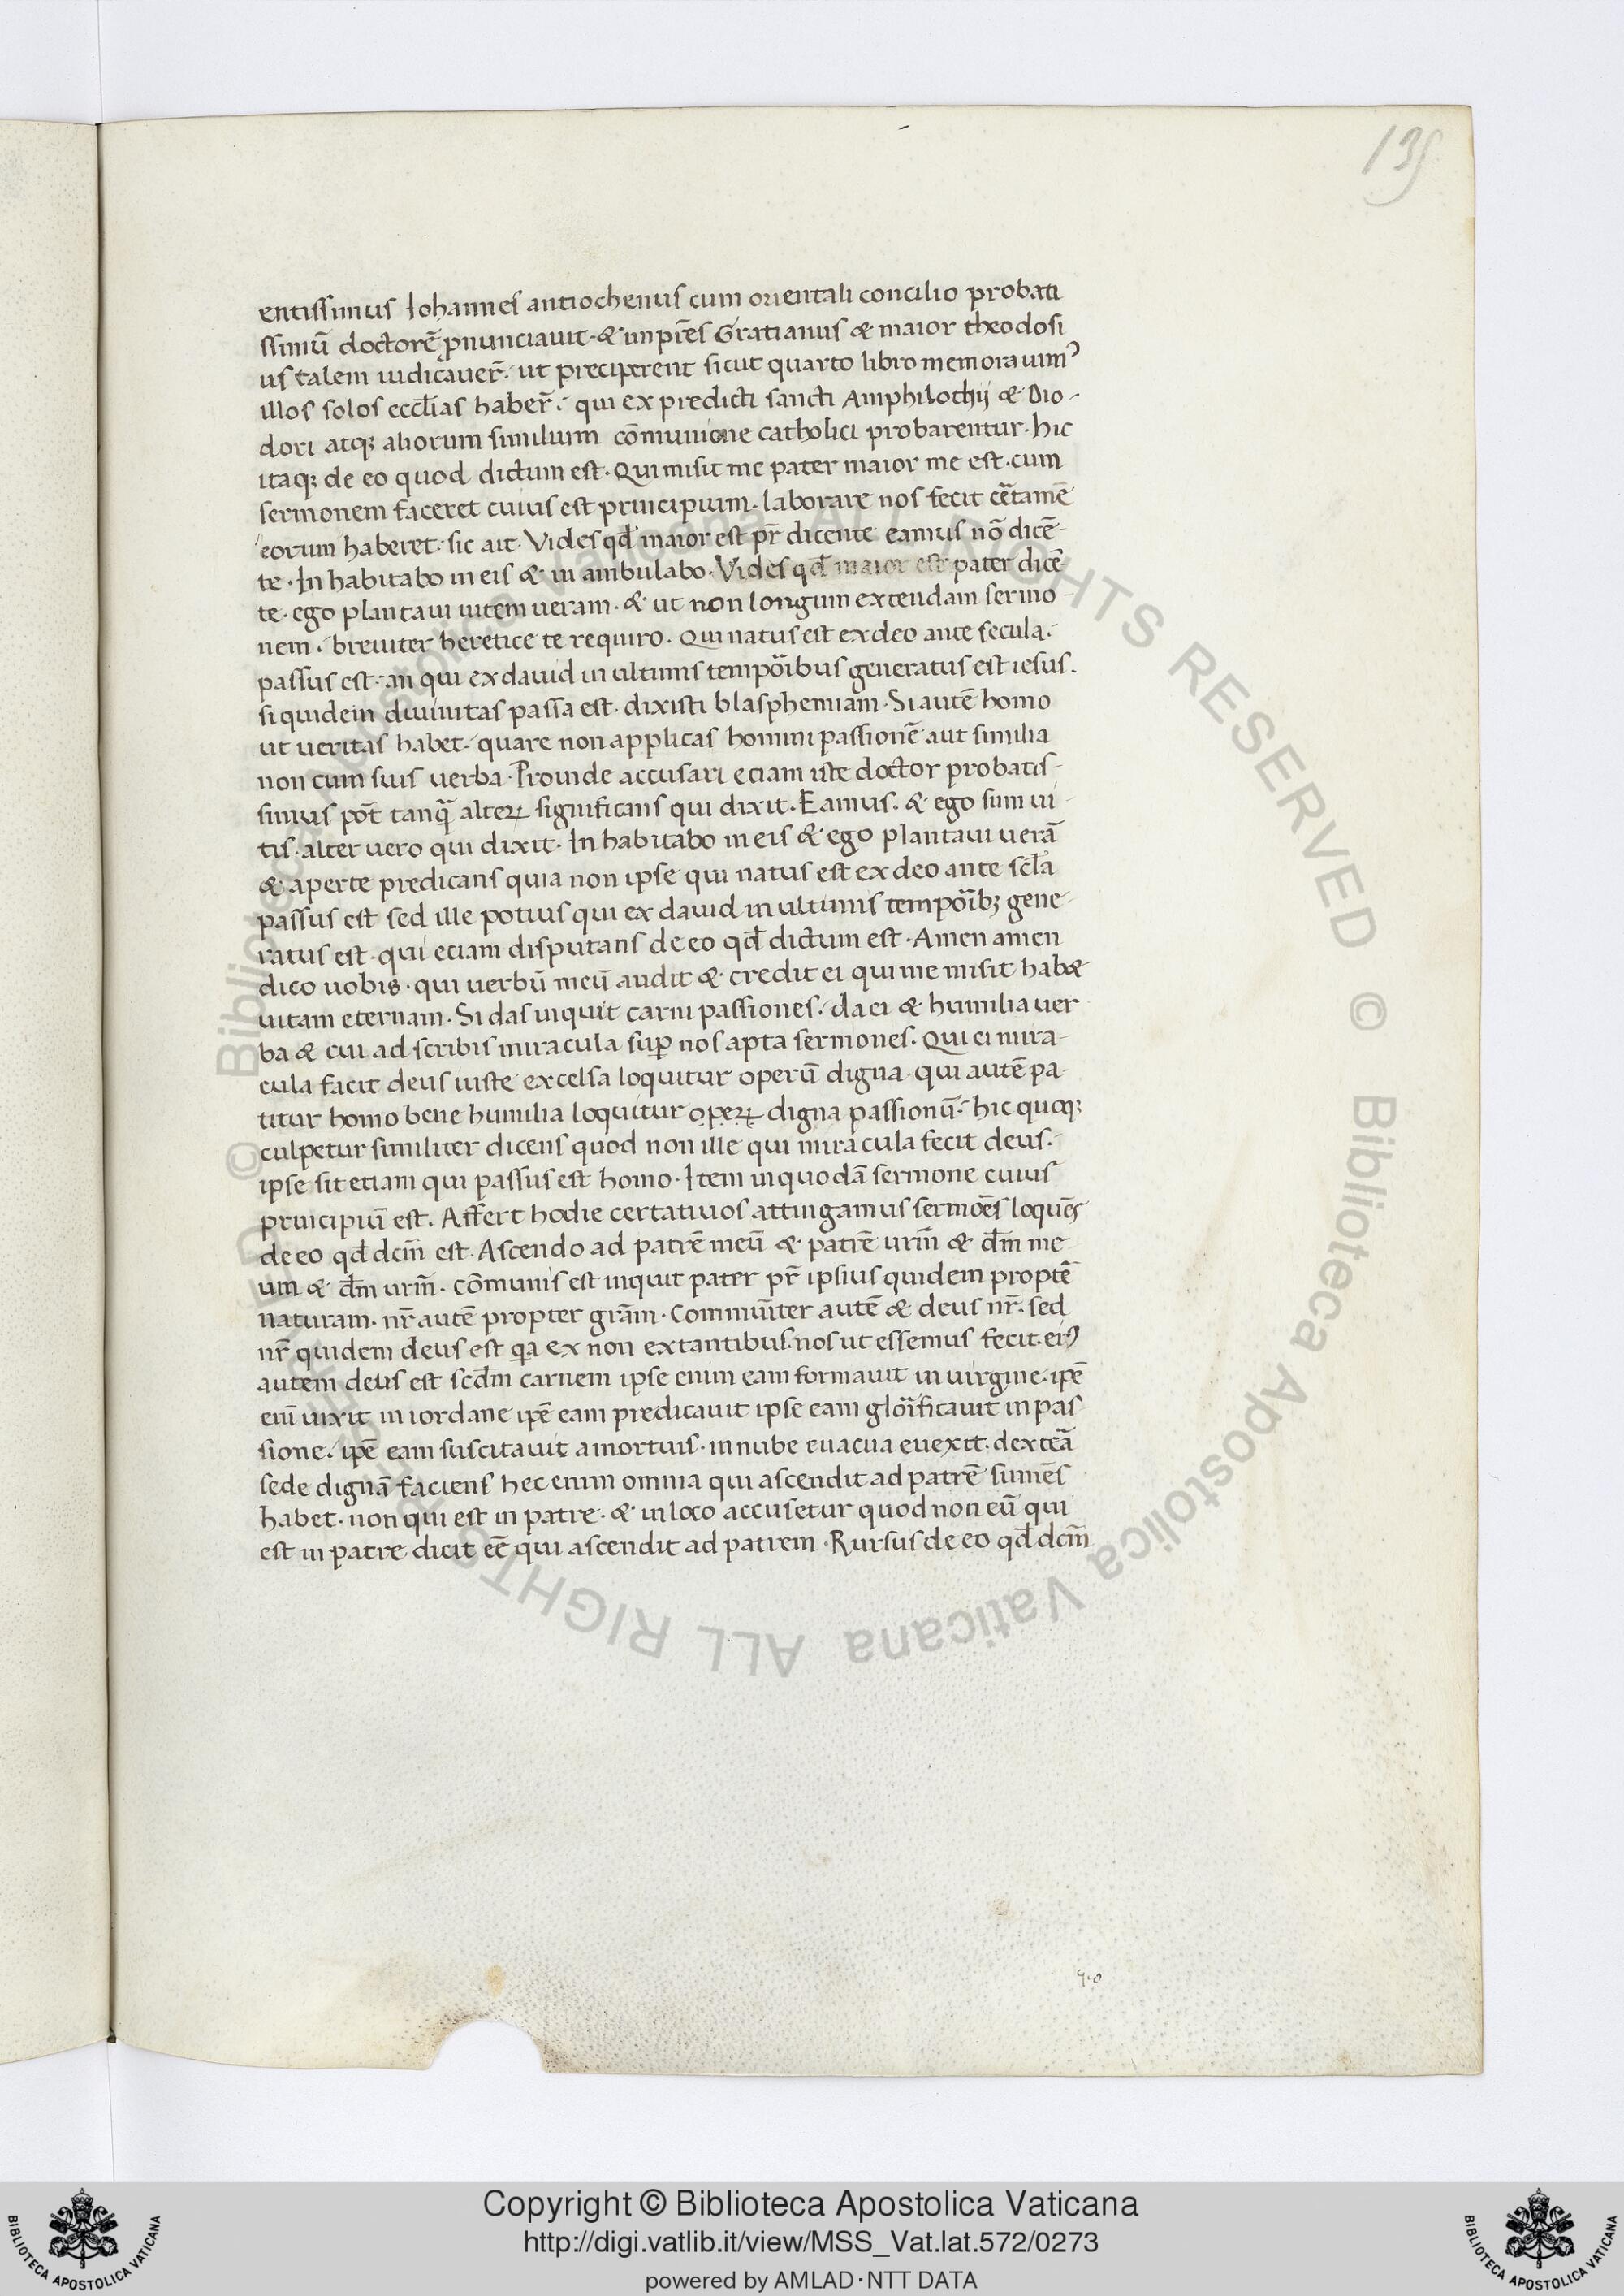 135
entissimus Iohannes antiochenus cum orientali concilio probati
ssimū doctorē pnunciauit · & inpr̄es Gratianus & maior theodosi
us talem iudicauer̄. ut preciperent sicut quarto libro memorauim⁹
illos solos eccl̄ias haber̄. qui ex predicti sancti Amphilochij & Dio-
dori atq; aliorum similium cōmunione catholici probarentur. hic
itaq; de eo quod dictum est. Qui misit me pater maior me est. cum
sermonem faceret cuius est principium. laborare nos fecit cētamē
eorum haberet. sic ait. Vides qd̄ maior est pr̄ dicente eamus nō dicē-
te. In habitabo in eis & in ambulabo. Vides qd̄ maior est pater dicē-
te. ego plantaui uitem ueram. & ut non longum extendam sermo-
nem. breuiter heretice te requiro. Qui natus est ex deo ante secula.
passus est. an qui ex dauid in ultimis tempōibus generatus est iesus.
siquidem diuinitas passa est. dixisti blasphemiam. Si autē homo
ut ueritas habet. quare non applicas homini passionē aut similia
non cum suis uerba. Proinde accusari eciam iste doctor probatis-
simus pōt tanq̄ alteꝝ significans qui dixit. Eamus. & ego sum ui-
tis. alter uero qui dixit. In habitabo in eis & ego plantaui uerā
& aperte predicans quia non ipse qui natus est ex deo ante scl̄a
passus est sed ille potius qui ex dauid in ultimis tempōib; gene-
ratus est. qui eciam disputans de eo qd̄ dictum est. Amen amen
dico uobis. qui uerbū meū audit & credit ei qui me misit hab&
uitam eternam. Si das inquit carni passiones. da ei & humilia uer
ba & cui ad scribis miracula sup̄ nos apta sermones. Qui ei mira-
cula facit deus iuste excelsa loquitur operū digna. qui autē pa-
titur homo bene humilia loquitur opeꝝ digna passionū. hic quoq;
culpetur similiter dicens quod non ille qui miracula fecit deus.
ipse sit etiam qui passus est homo. Item in quodā sermone cuius
principiū est. Affert hodie certatiuos attingamus sermōes loquēs
de eo qd̄ dcm̄ est. Ascendo ad patrē meū & patrē urm̄ & dm̄ me-
um & dm̄ urm̄. cōmunis est inquit pater pr̄ ipsius quidem proptē
naturam. nr̄ autē propter grām. Commūiter autē & deus nr̄. sed
nr̄ quidem deus est qa ex non extantibus. nos ut essemus fecit. ei⁹
autem deus est scd̄m carnem ipse enim eam formauit in uirgine. ipē
enī uixit in iordane ipē eam predicauit ipse eam glōificauit in pas-
sione. ipē eam suscitauit a mortuis. in nube euacua euexit. dextēa
sede dignā faciens hec enim omnia qui ascendit ad patrē sumēs
habet. non qui est in patre. & in loco accusetur quod non eū qui
est in patre dicit eē qui ascendit ad patrem. Rursus de eo qd̄ dcm̄
© Biblioteca Apostolica Vaticana ALL RIGHTS RESERVED
© Biblioteca Apostolica Vaticana ALL RIGHTS RESERVED
Copyright © Biblioteca Apostolica Vaticana
http://digi.vatlib.it/view/MSS_Vat.lat.572/0273
powered by AMLAD·NTT DATA
BIBLIOTECA APOSTOLICA VATICANA
BIBLIOTECA APOSTOLICA VATICANA